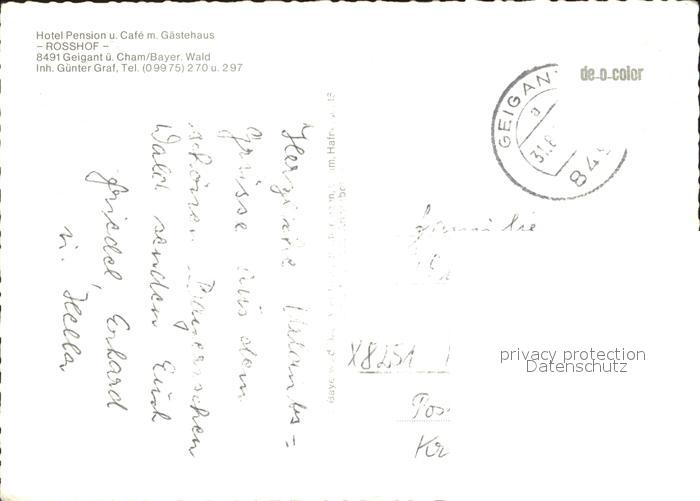 Hotel Pension u. Café m. Gästehaus
– ROSSHOF –
8491 Geigant ü. Cham/Bayer. Wald
Inh. Günter Graf, Tel. (0 99 75) 2 70 u. 2 97
de-o-color
GEIGAN
a
31.8
849
Herzliche Urlaubs=
Grüsse aus dem
schönen Bayerischen
Wald senden Euch
Friedel, Erhard
u. Hella
Familie
X8251
Pos
Kr
privacy protection
Datenschutz